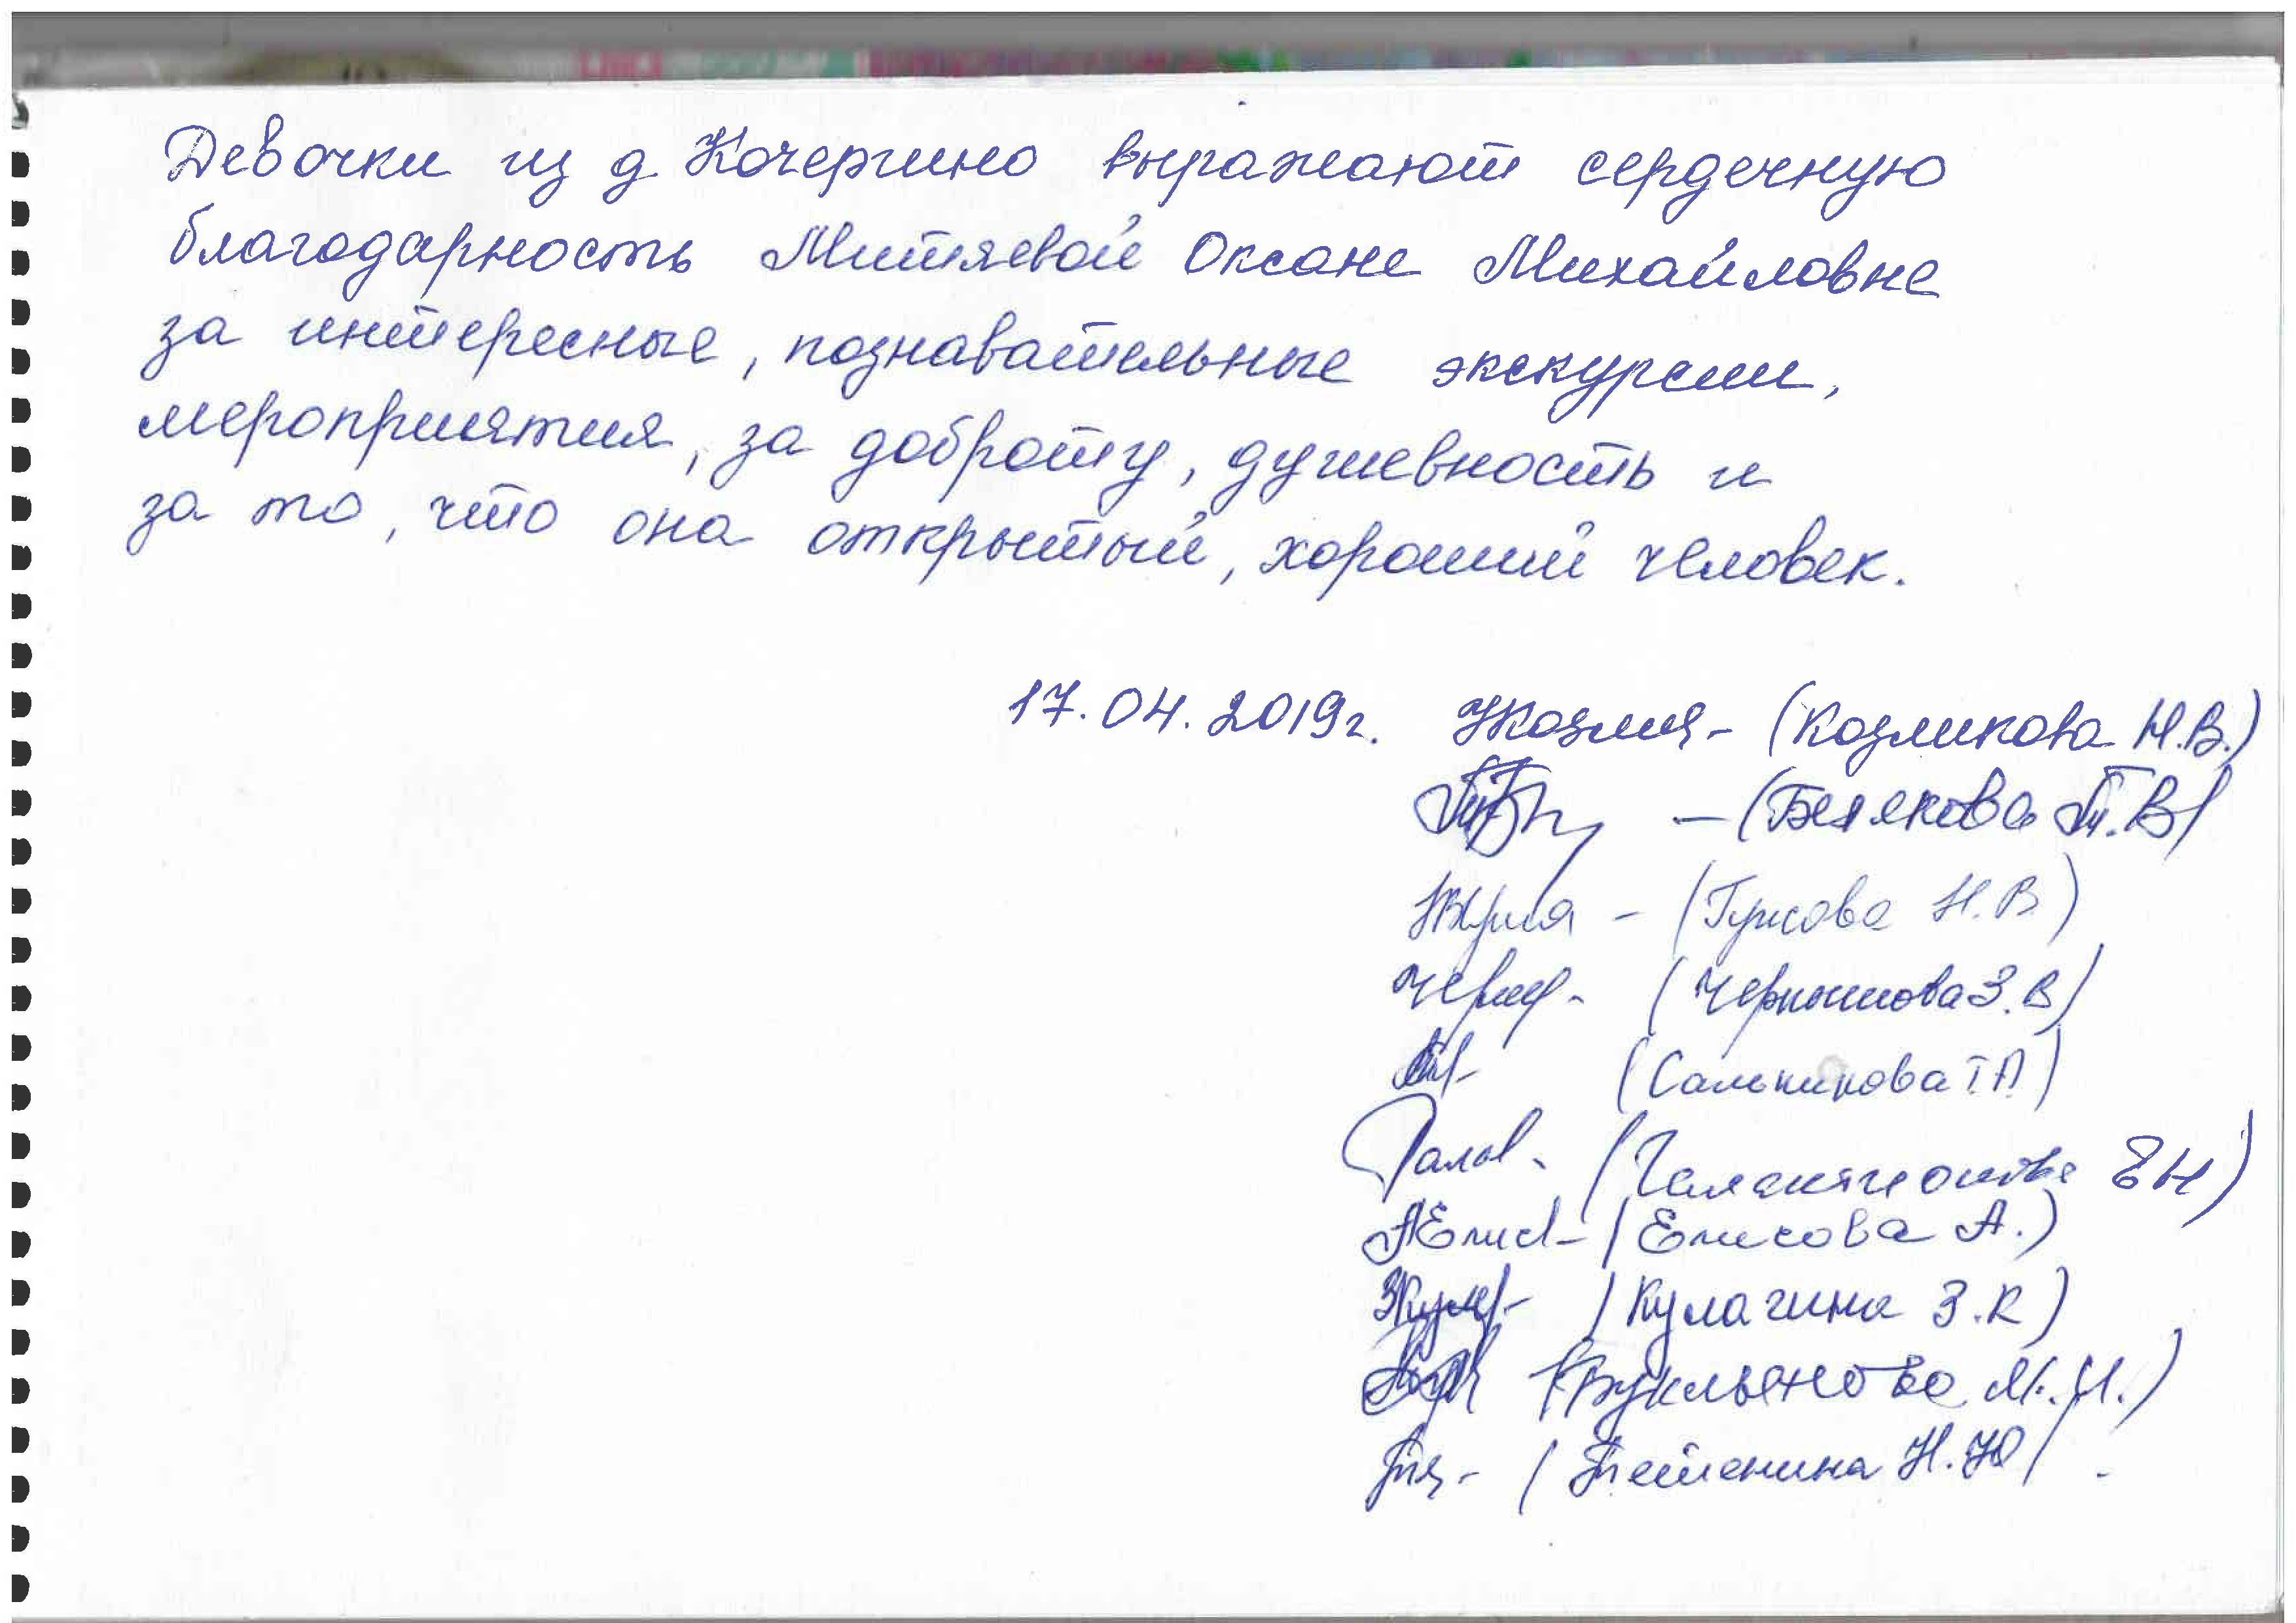 Девочки из д. Кочергино выражают сердечную
благодарность Митяевой Оксане Михайловне
за интересные, познавательные экскурсии,
мероприятия, за доброту, душевность и
за то, что она открытый, хороший человек.
17.04.2019г. (Козликова Н.В.)
— (Белякова Т.В)
- (Гужова Н.В)
- (Чернышова З.В)
(Сальникова Т.А)
ЕН)
АЕлис - (Елисова А.)
(Кулагина З.К)
(Крукльяново М.И.)
- (Тетенина Н.Ю)